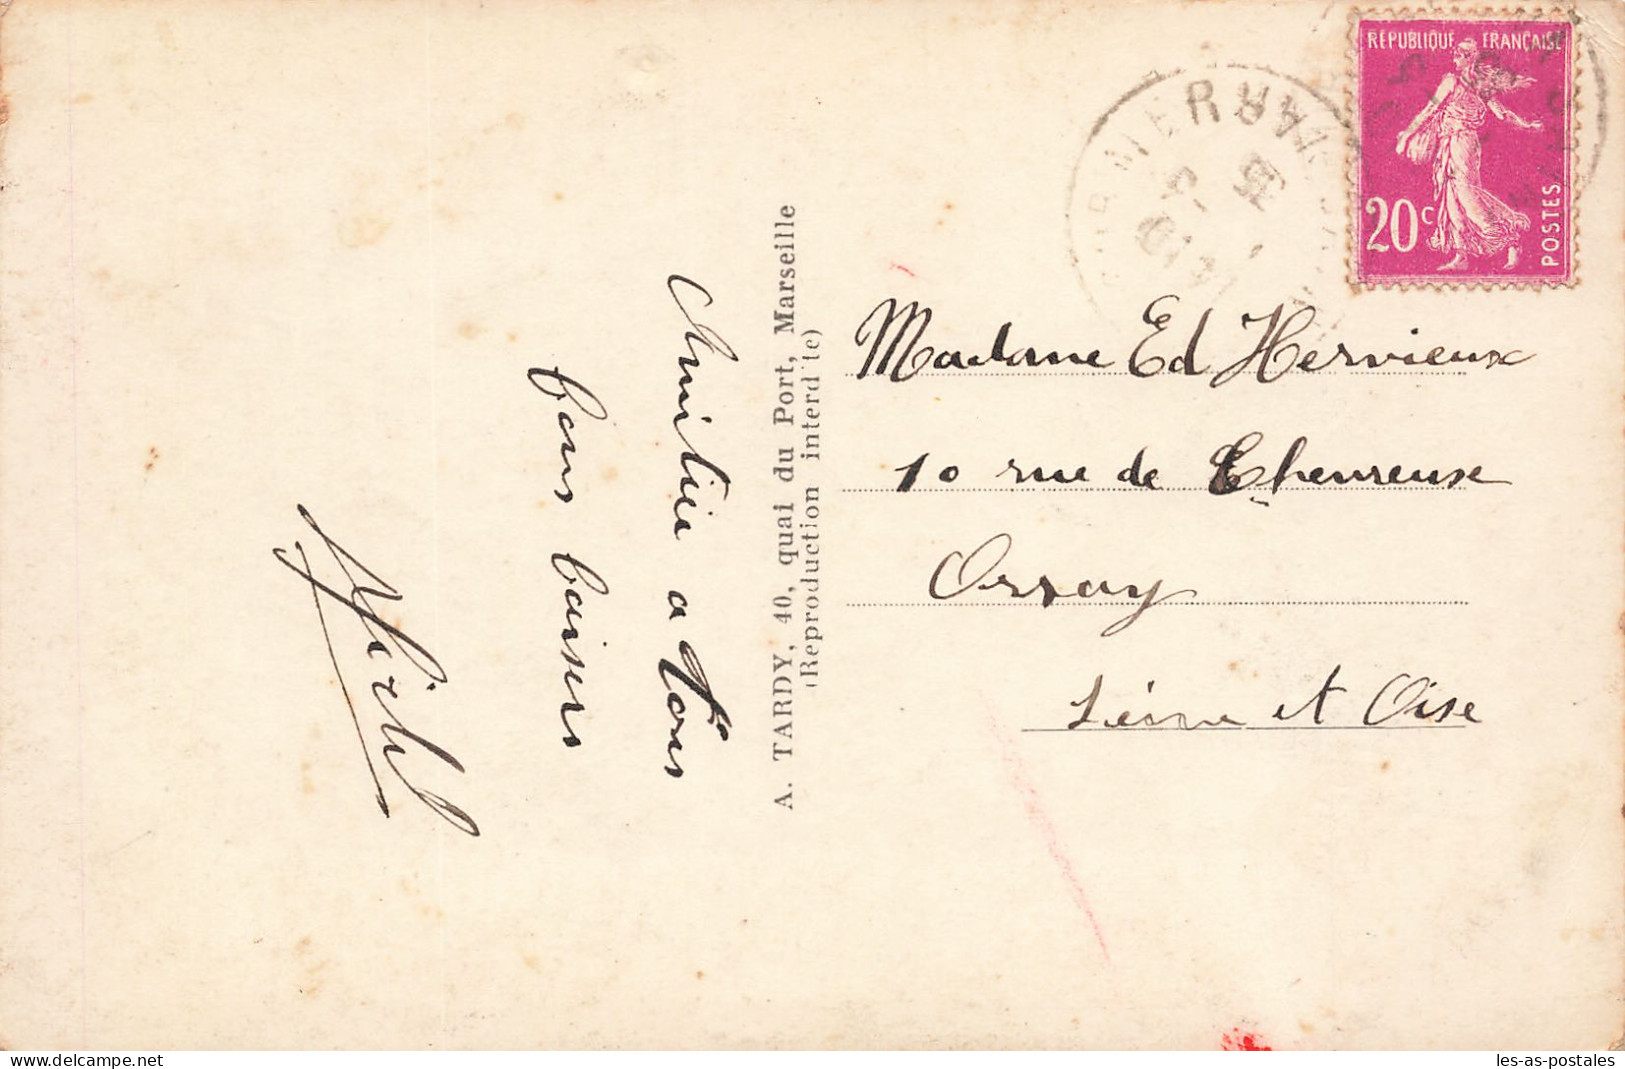 RÉPUBLIQUE FRANÇAISE
20c
POSTES
MER
VAR
35
Madame Ed Hervieux
10 rue de Chevreuse
Orsay
Seine et Oise
A. TARDY, 40, quai du Port, Marseille
(Reproduction interdite)
Amitiés a Tous
bons baisers
les-as-postales